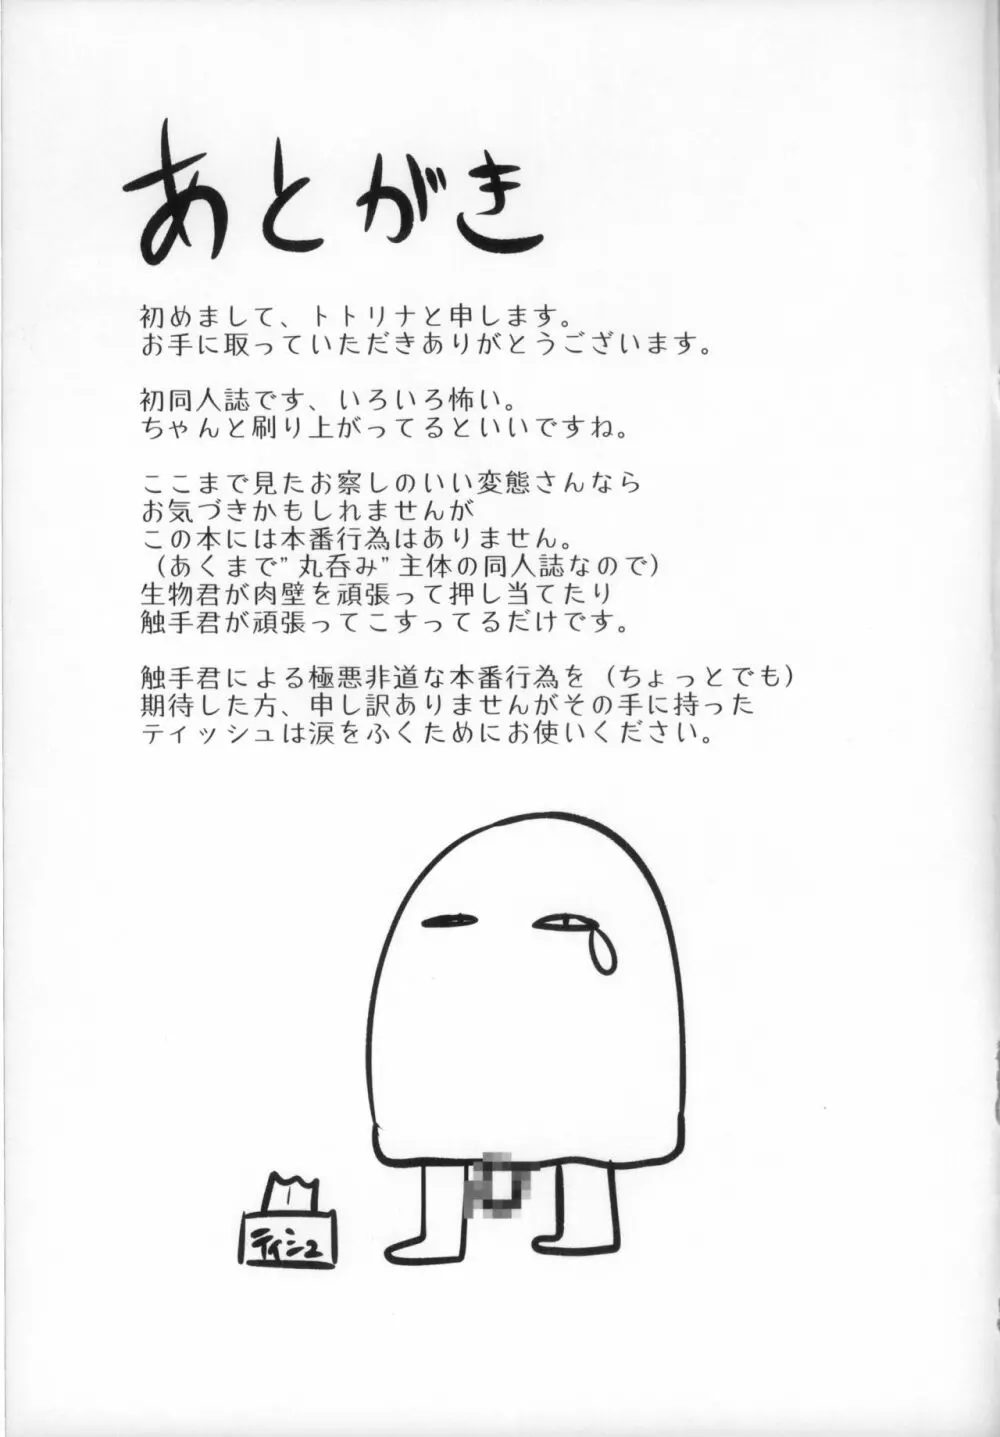 あとがき
初めまして、トトリナと申します。
お手に取っていただきありがとうございます。
初同人誌です、いろいろ怖い。
ちゃんと刷り上がってるといいですね。
ここまで見たお察しのいい変態さんなら
お気づきかもしれませんが
この本には本番行為はありません。
（あくまで”丸呑み”主体の同人誌なので）
生物君が肉壁を頑張って押し当てたり
触手君が頑張ってこすってるだけです。
触手君による極悪非道な本番行為を（ちょっとでも）
期待した方、申し訳ありませんがその手に持った
ティッシュは涙をふくためにお使いください。
ティシュ